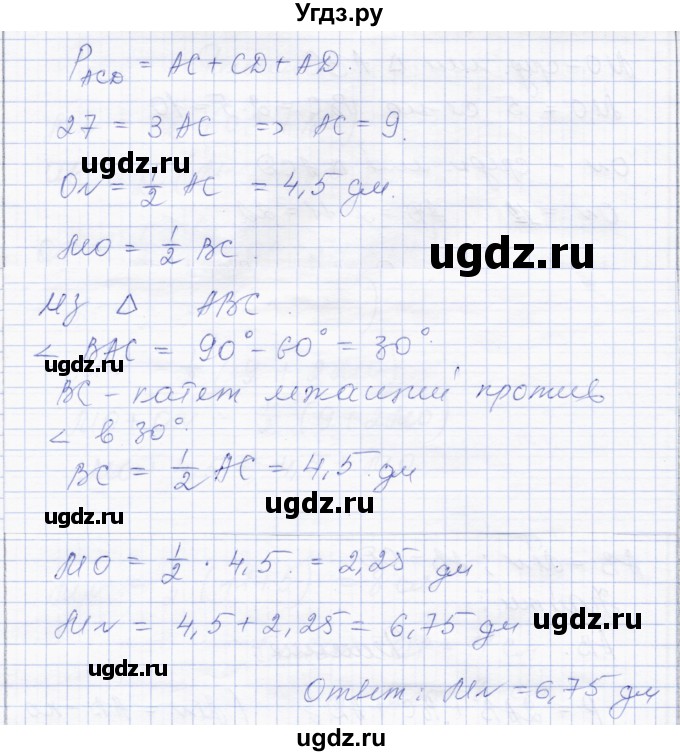 Угдз.ру
P_ACD = AC + CD + AD.
27 = 3 AC => AC = 9.
ugdz.ru
ON = 1/2 AC = 4,5 дм.
MO = 1/2 BC.
ugdz.ru
Из Δ ABC.
∠ BAC = 90° - 60° = 30°.
ugdz.ru
BC - катет лжащий против
∠ в 30°.
BC = 1/2 AC = 4,5 дм
ugdz.ru
ugdz.ru
MO = 1/2 · 4,5. = 2,25 дм
MN = 4,5 + 2,25 = 6,75 дм
ugdz.ru
ugdz.ru
Ответ: MN = 6,75 дм
ugdz.ru
ugdz.ru